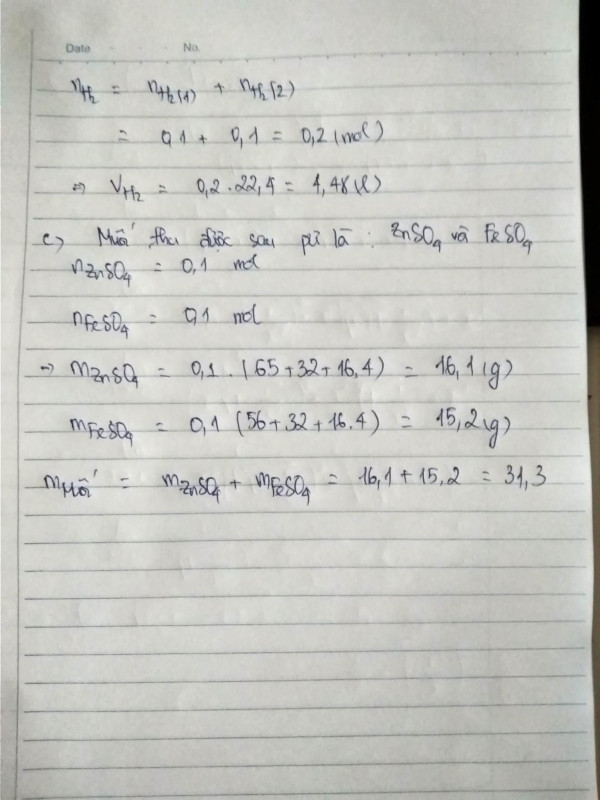 Date No.
nH₂ = nH₂(1) + nH₂(2)
= 0,1 + 0,1 = 0,2 (mol)
=> VH₂ = 0,2 . 22,4 = 4,48 (l)
c, Muối thu được sau pứ là : ZnSO₄ và FeSO₄
nZnSO₄ = 0,1 mol
nFeSO₄ = 0,1 mol
-> mZnSO₄ = 0,1 . (65+32+16.4) = 16,1 (g)
mFeSO₄ = 0,1 (56+32+16.4) = 15,2 (g)
mMuối = mZnSO₄ + mFeSO₄ = 16,1 + 15,2 = 31,3